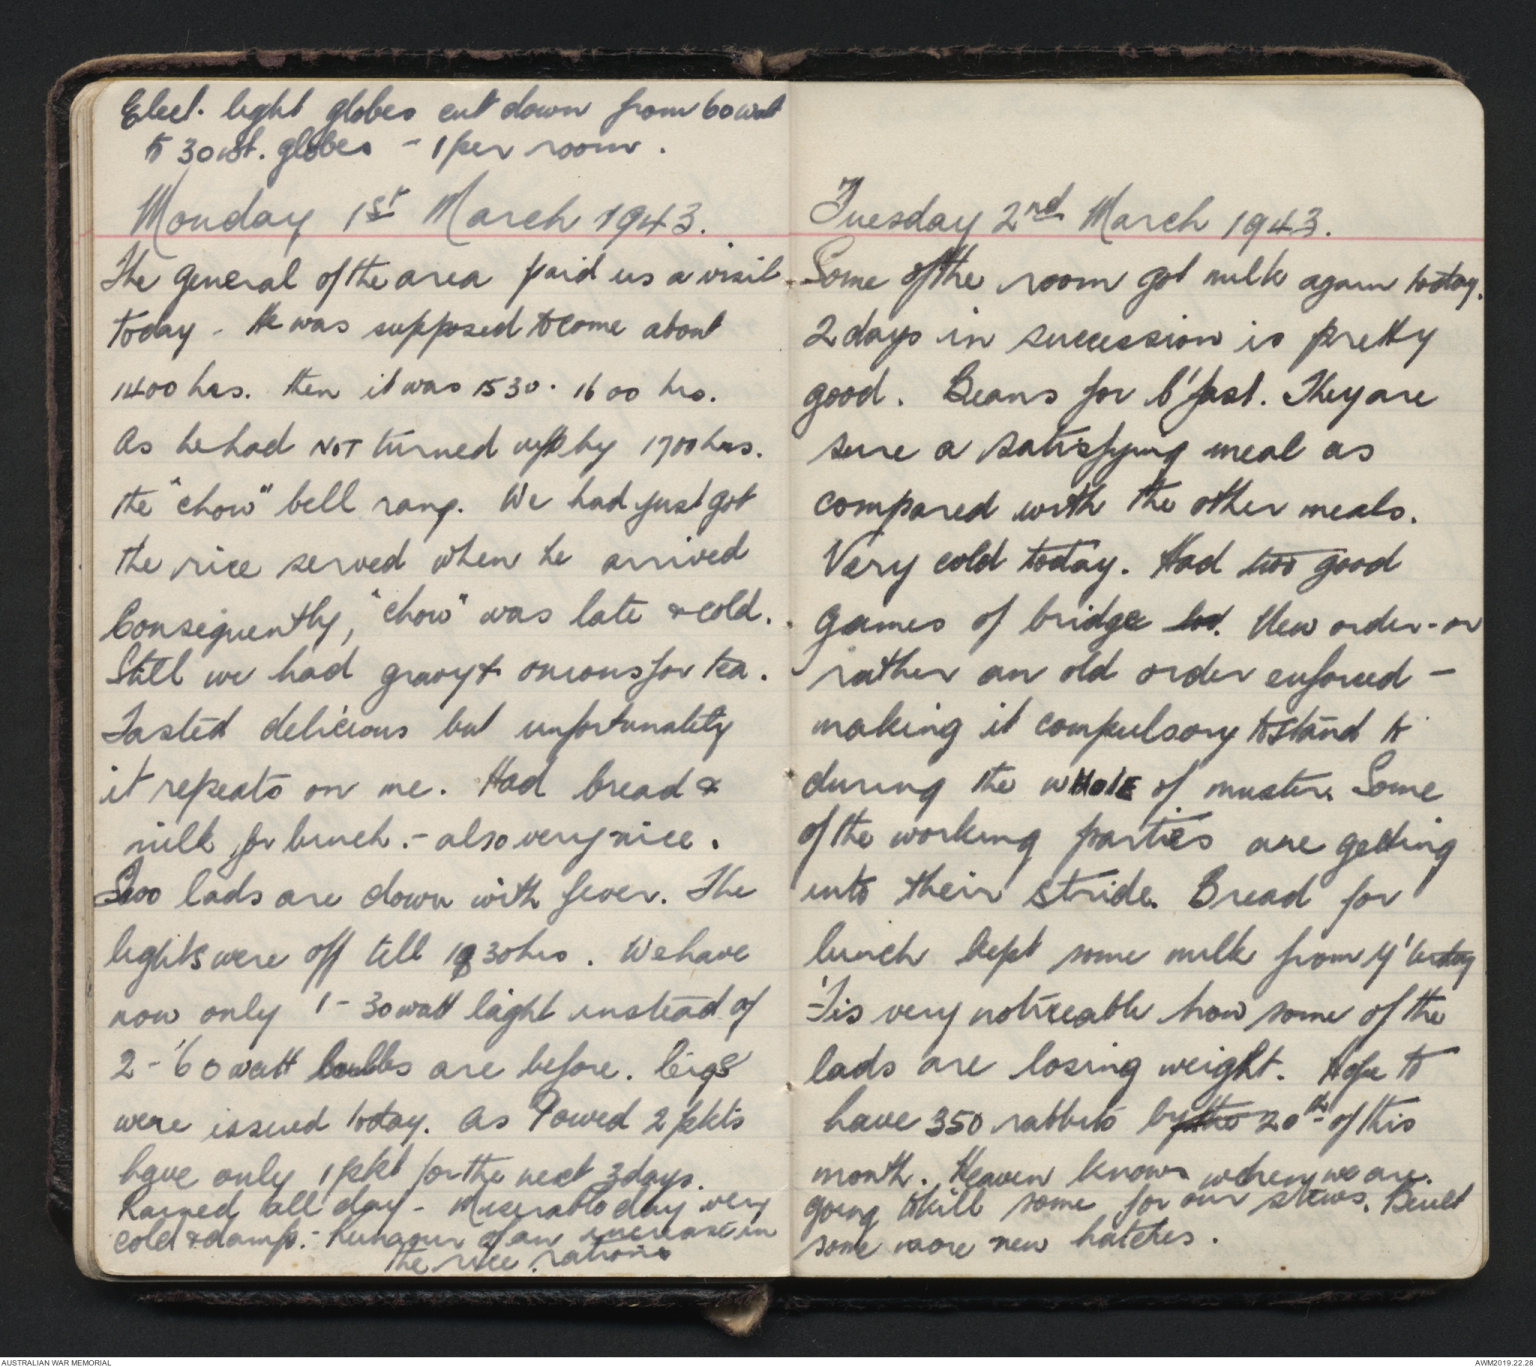 Elect. light globes cut down from 60 watt
to 30 wt. globes - 1 per room.
Monday 1st March 1943.
The General of the area paid us a visit
today - He was supposed to come about
1400 hrs. then it was 1530. 1600 hrs.
As he had NOT turned up by 1700 hrs.
the "chow" bell rang. We had just got
the rice served when he arrived
Consequently, "chow" was late & cold.
Still we had gravy & onions for tea.
Tasted delicious but unfortunately
it repeats on me. Had bread &
milk for lunch. - also very nice.
Two lads are down with fever. The
lights were off till 1930 hrs. We have
now only 1 - 30 watt light instead of
2 - 60 watt bulbs are before. Cigs
were issued today. As I owed 2 pkts
have only 1 pkt for the next 3 days.
Rained all day - Miserable day very
cold & damp. - Rumour of an increase in
the rice rations
Tuesday 2nd March 1943.
Some of the room got milk again today.
2 days in succession is pretty
good. Beans for b'fast. They are
sure a satisfying meal as
compared with the other meals.
Very cold today. Had two good
games of bridge too. New order - or
rather an old order enforced -
making it compulsory to stand to
during the wHOlE of muster. Some
of the working parties are getting
into their stride. Bread for
lunch kept some milk from y'terday
'Tis very noticeable how some of the
lads are losing weight. Hope to
have 350 rabbits by the 20th of this
month. Heaven knows when we are
going to kill some for our stews. Built
some more new hutches.
AUSTRALIAN WAR MEMORIAL
AWM2019.22.28